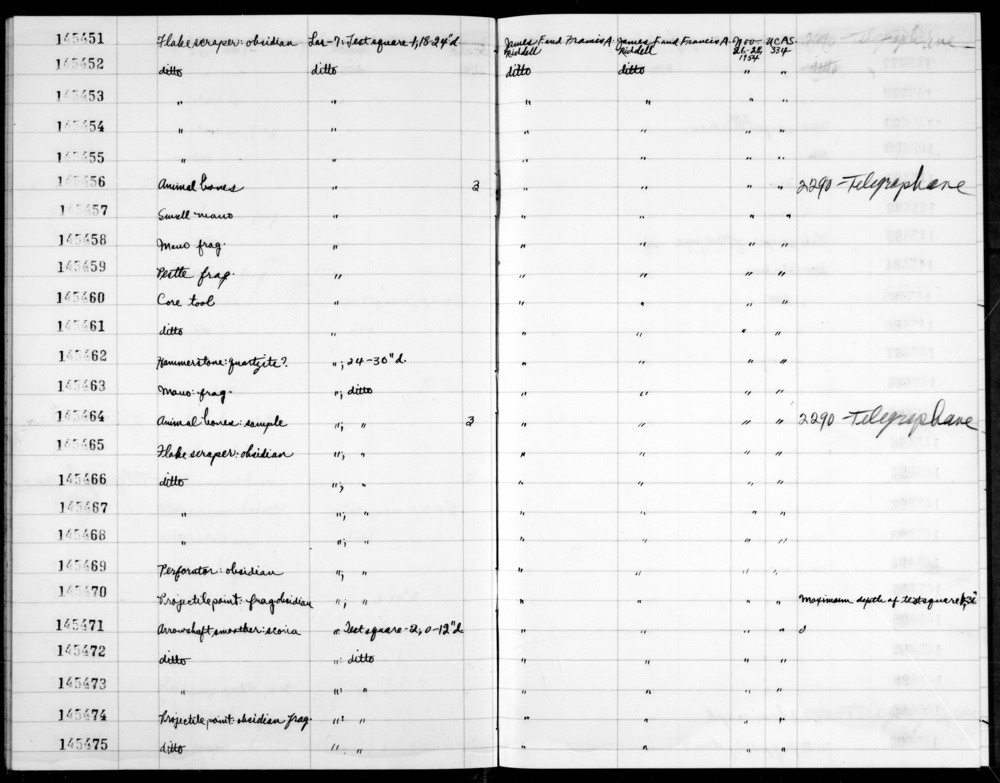 145451 Flake scraper: obsidian Las-7: Test square-1, 18-24"d. James F. and Francis A. Riddell James F. and Francis A. Riddell Nov- 26-28, 1954 UCAS 334
145452 ditto ditto ditto ditto " "
145453 " " " " " "
145454 " " " " " "
145455 " " " " " "
145456 Animal bones " 3 " " " " 2290-Telegraphane
145457 Small mano " " " " "
145458 Mano frag. " " " " "
145459 Pestle frag. " " " " "
145460 Core tool " " " " "
145461 ditto " " " " "
145462 Hammerstone: quartzite? "; 24-30"d. " " " "
145463 Mano: frag. "; ditto " " " "
145464 Animal bones: sample "; " 3 " " " " 2290-Telegraphane
145465 Flake scraper: obsidian "; " " " " "
145466 ditto "; " " " " "
145467 " "; " " " " "
145468 " "; " " " " "
145469 Perforator: obsidian "; " " " " "
145470 Projectile point: frag obsidian "; " " " " " Maximum depth of test square 1, 36"
145471 Arrowshaft smoother: scoria ": Test square-2, 0-12"d. " " " "
145472 ditto ": ditto " " " "
145473 " ": " " " " "
145474 Projectile point obsidian frag. ": " " " " "
145475 ditto " " " " " "